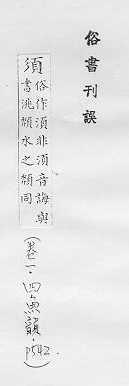 俗書刊誤
須 俗作湏非湏音誨與
書洮頮水之頮同
(卷一·四魚韻·p542).